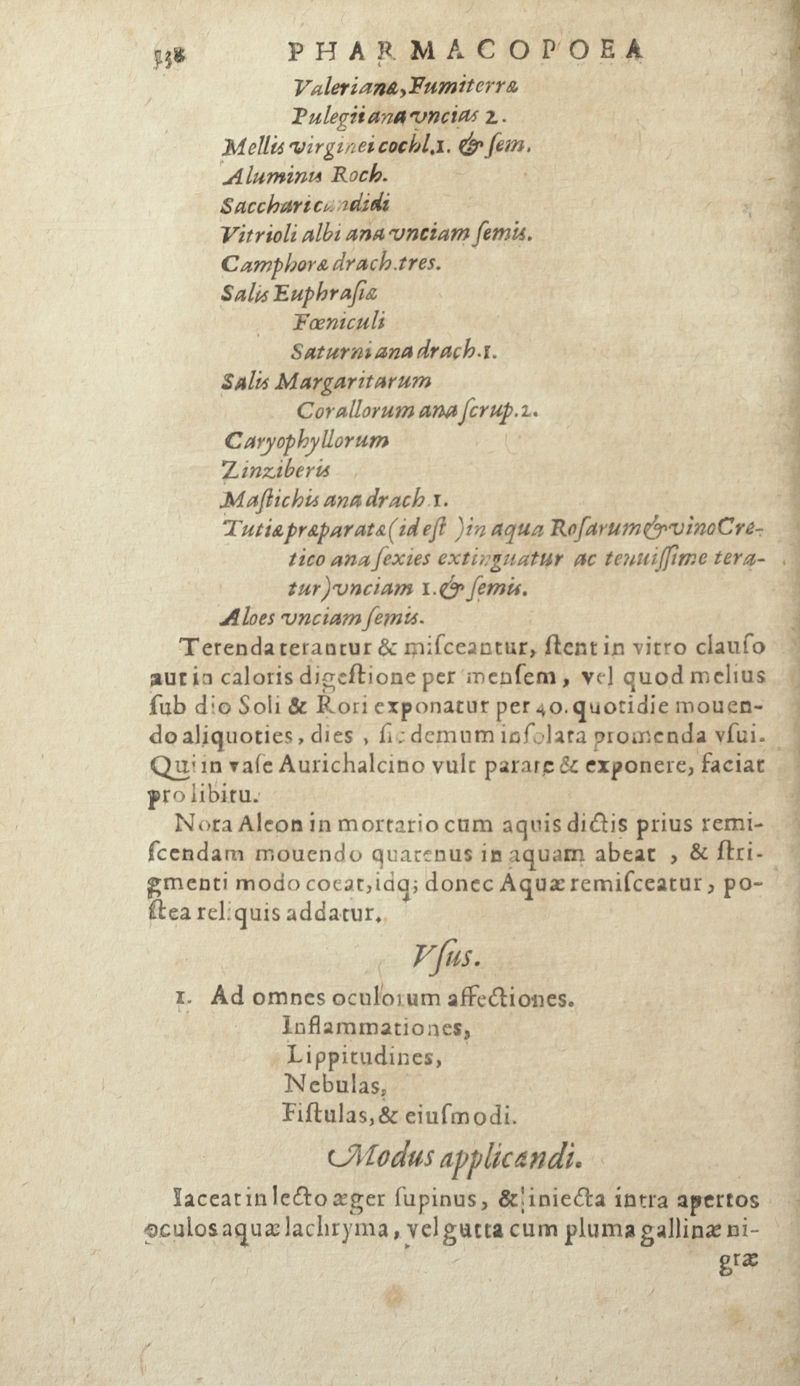 PHARMACOPOEA
Valerianæ, Fumiterræ
Pulegii ana vncias 2.
Mellis virginei cochl.1. & ſem.
Aluminis Roch.
Sacchari candidi
Vitrioli albi ana vnciam ſemis.
Camphoræ drach.tres.
Salis Euphraſiæ
Fœniculi
Saturni ana drach.1.
Salis Margaritarum
Corallorum ana ſcrup.2.
Caryophyllorum
Zinziberis
Maſtichis ana drach.1.
Tutiæ præparatæ (id eſt )in aqua Roſarum & vino Cre-
tico ana ſexies extinguatur ac tenuiſſime tera-
tur) vnciam 1. & ſemis.
Aloes vnciam ſemis.
Terenda terantur & miſceantur, ſtent in vitro clauſo
aut in caloris digeſtione per menſem, vel quod melius
ſub dio Soli & Rori exponatur per 40. quotidie mouen-
do aliquoties, dies , ſic demum inſolata promenda vſui.
Qui in vaſe Aurichalcino vult parare & exponere, faciat
pro libitu.
Nota Aleon in mortario cum aquis dictis prius remi-
ſcendam mouendo quatenus in aquam abeat , & ſtri-
gmenti modo coeat, idq; donec Aquæ remiſceatur, po-
ſtea reliquis addatur.
Vſus.
1. Ad omnes oculorum affectiones.
Inflammationes,
Lippitudines,
Nebulas,
Fiſtulas, & eiuſmodi.
Modus applicandi.
Iaceat in lecto æger ſupinus, & iniecta intra apertos
oculos aquæ lachryma, vel gutta cum pluma gallinæ ni-
græ